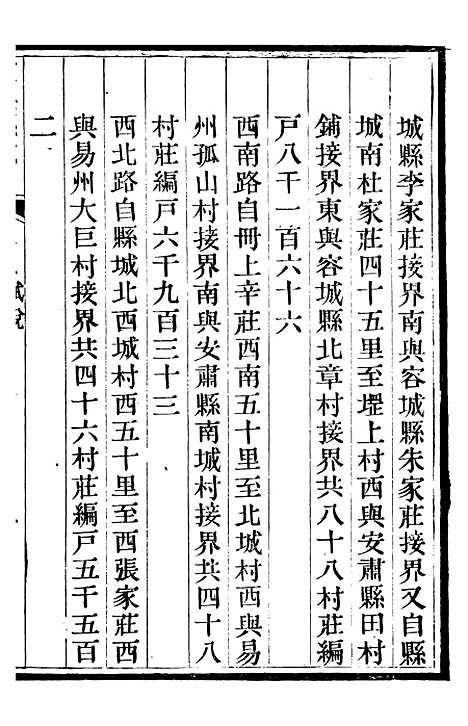 城縣李家莊接界南與容城縣朱家莊接界又自縣
城南杜家莊四十五里至堽上村西與安肅縣田村
鋪接界東與容城縣北章村接界共八十八村莊編
戸八千一百六十六
西南路自冊上辛莊西南五十里至北城村西與易
州孤山村接界南與安肅縣南城村接界共四十八
村莊編戸六千九百三十三
西北路自縣城北西城村西五十里至西張家莊西
與易州大巨村接界共四十六村莊編戸五千五百
二